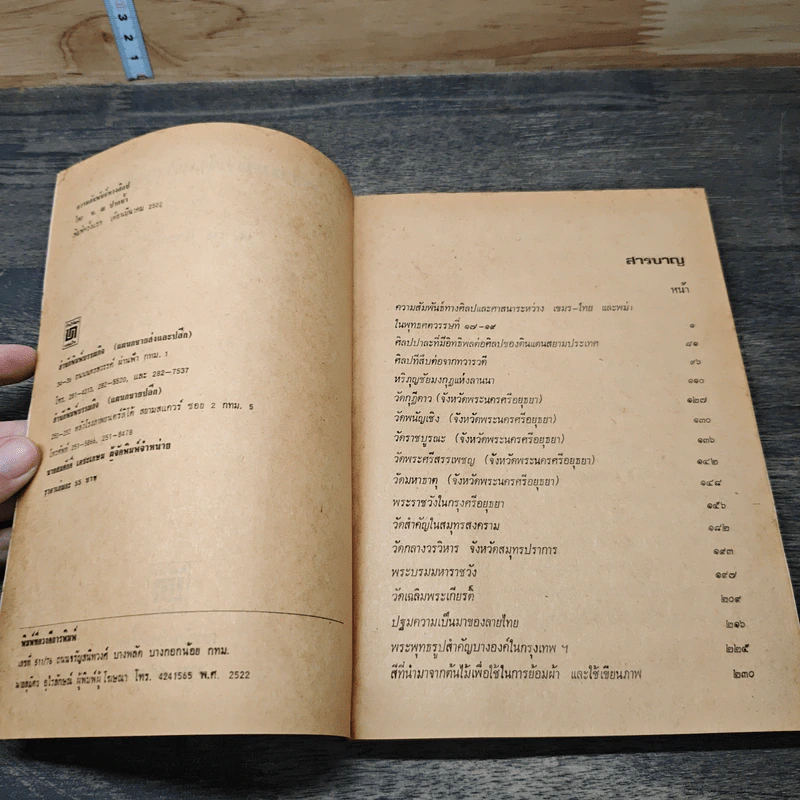 3
2
1
ความสัมพันธ์ทางศิลป์
โดย น. ณ ปากน้ำ
พิมพ์ครั้งแรก เดือนมีนาคม 2522
สำนักพิมพ์ธรรมกิจ (แผนกขายส่งและปลีก)
34-36 ถนนนครสวรรค์ ผ่านฟ้า กทม. 1
โทร. 281-4213, 282-8520, และ 282-7537
สำนักพิมพ์ธรรมกิจ (แผนกขายปลีก)
250-252 หลังโรงภาพยนตร์ลิโด้ สยามสแควร์ ซอย 2 กทม. 5
โทรศัพท์ 251-5866, 251-8478
นายสมศักดิ์ เตชะเกษม ผู้จัดพิมพ์จำหน่าย
ราคาเล่มละ 55 บาท
พิมพ์ที่ดวงดีการพิมพ์
เลขที่ 511/76 ถนนจรัญสนิทวงศ์ บางพลัด บางกอกน้อย กทม.
นายสุมิตร อุไรลักษณ์ ผู้พิมพ์ผู้โฆษณา โทร. 4241565 พ.ศ. 2522
สารบาญ
หน้า
ความสัมพันธ์ทางศิลปและศาสนาระหว่าง เขมร-ไทย และพม่า
ในพุทธศตวรรษที่ ๑๗-๑๙ ๑
ศิลปปาละที่มีอิทธิพลต่อศิลปของดินแดนสยามประเทศ ๘๑
ศิลปที่สืบต่อจากทวารวดี ๙๖
หริภุญชัยมงกุฎแห่งลานนา ๑๑๐
วัดกุฎีดาว (จังหวัดพระนครศรีอยุธยา) ๑๒๗
วัดพนัญเชิง (จังหวัดพระนครศรีอยุธยา) ๑๓๐
วัดราชบูรณะ (จังหวัดพระนครศรีอยุธยา) ๑๓๖
วัดพระศรีสรรเพชญ (จังหวัดพระนครศรีอยุธยา) ๑๔๒
วัดมหาธาตุ (จังหวัดพระนครศรีอยุธยา) ๑๔๘
พระราชวังในกรุงศรีอยุธยา ๑๕๖
วัดสำคัญในสมุทรสงคราม ๑๘๒
วัดกลางวรวิหาร จังหวัดสมุทรปราการ ๑๙๓
พระบรมมหาราชวัง ๑๙๗
วัดเฉลิมพระเกียรติ์ ๒๐๙
ปฐมความเป็นมาของลายไทย ๒๑๖
พระพุทธรูปสำคัญบางองค์ในกรุงเทพ ฯ ๒๒๕
สีที่นำมาจากต้นไม้เพื่อใช้ในการย้อมผ้า และใช้เขียนภาพ ๒๓๐